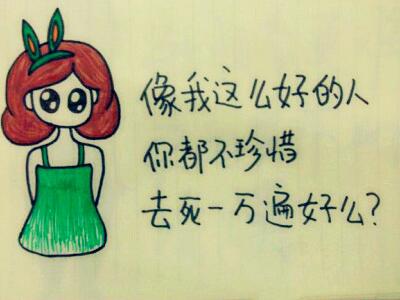 像我这么好的人
你都不珍惜
去死一万遍好么?